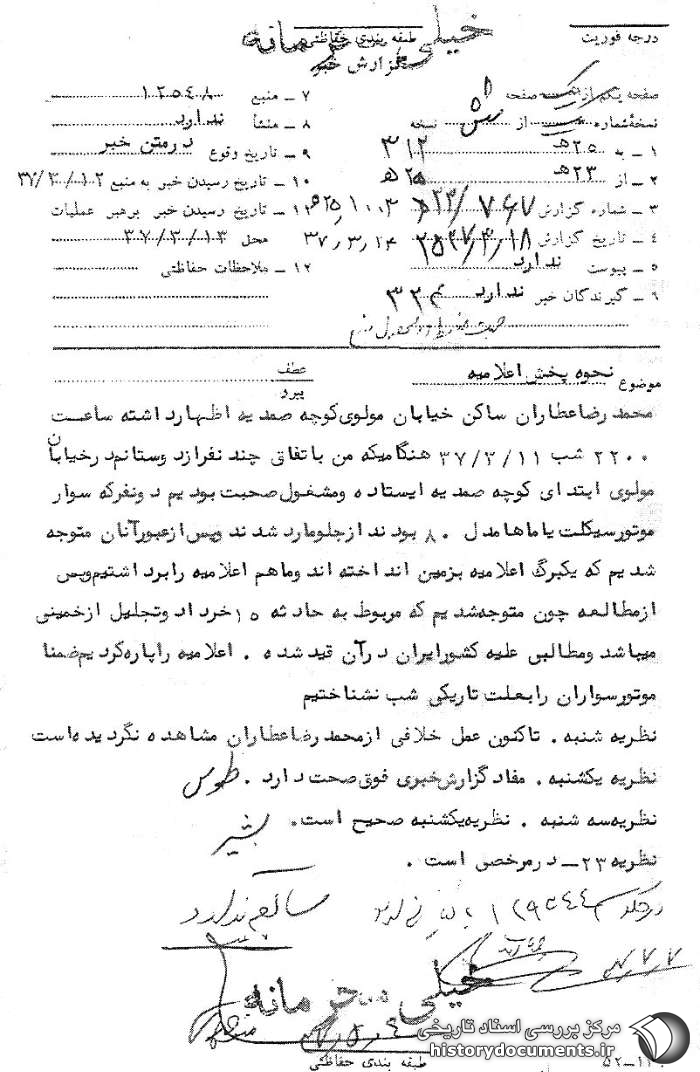 درجه فوریت
طبقه بندی حفاظتی
خیلی محرمانه
گزارش خبر
صفحه یکم از یک صفحه
نسخهٔ شماره از نسخه
۱ ـ به ۲۵هـ ۳۱۲
۲ ـ از ۲۳هـ ۲۵هـ
۳ ـ شماره گزارش
۴ ـ تاریخ گزارش
۵ ـ پیوست ندارد
۶ ـ گیرندگان خبر ندارد
۷ ـ منبع ۱۲۵۴۸
۸ ـ منشأ ندارد
۹ ـ تاریخ وقوع درمتن خبر
۱۰ ـ تاریخ رسیدن خبر به منبع ۳۷/۳/۱۲
۱۱ ـ تاریخ رسیدن خبر برهبر عملیات
محل ۳۷/۳/۱۳
۳۷٫۳٫۱۴
۱۲ ـ ملاحظات حفاظتی
موضوع نحوه پخش اعلامیه
عطف
پیرو
محمدرضاعطاران ساکن خیابان مولوی کوچه صمدیه اظهارداشته ساعت
۲۲۰۰ شب ۳۷/۳/۱۱ هنگامیکه من باتفاق چند نفرازدوستانم درخیابان
مولوی ابتدای کوچه صمدیه ایستاده ومشغول صحبت بودیم دونفرکه سوار
موتورسیکلت یاماها مدل ۸۰ بودند ازجلومارد شدند وپس ازعبورآنان متوجه
شدیم که یکبرگ اعلامیه بزمین انداخته اند وماهم اعلامیه رابرداشتیم وپس
ازمطالعه چون متوجه شدیم که مربوط به حادثه ۱۵خرداد وتجلیل ازخمینی
میباشد ومطالبی علیه کشورایران درآن قید شده . اعلامیه راپاره کردیم ضمنا
موتورسواران رابعلت تاریکی شب نشناختیم
نظریه شنبه . تاکنون عمل خلافی ازمحمدرضاعطاران مشاهده نگردیده است
نظریه یکشنبه . مفاد گزارش خبری فوق صحت دارد . طوس
نظریه سه شنبه . نظریه یکشنبه صحیح است . بشیر
نظریه ۲۳ـ درمرخصی است .
خیلی محرمانه
طبقه بندی حفاظتی
مرکز بررسی اسناد تاریخی
historydocuments.ir